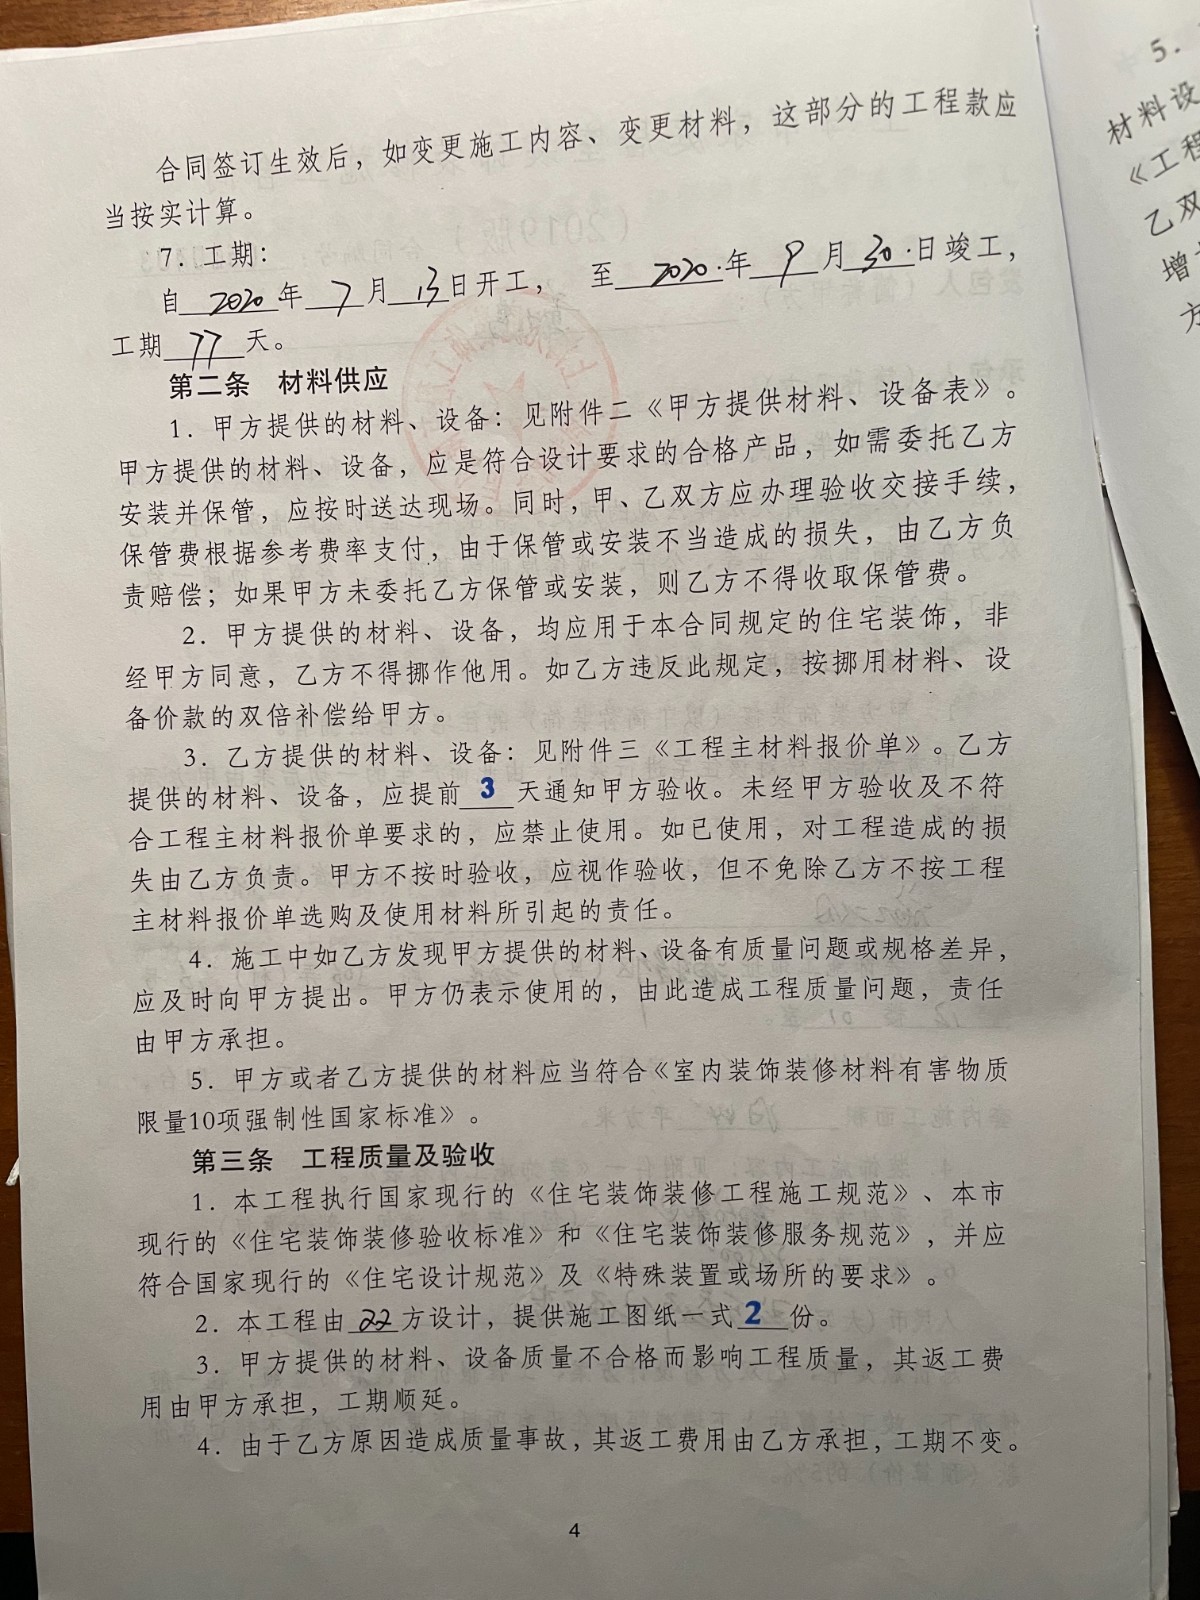 合同签订生效后，如变更施工内容、变更材料，这部分的工程款应
当按实计算。
7. 工期：
自 2020 年 7 月 13 日开工， 至 2020. 年 9 月 30. 日竣工，
工期 77 天。
第二条 材料供应
1. 甲方提供的材料、设备：见附件二《甲方提供材料、设备表》。
甲方提供的材料、设备，应是符合设计要求的合格产品，如需委托乙方
安装并保管，应按时送达现场。同时，甲、乙双方应办理验收交接手续，
保管费根据参考费率支付，由于保管或安装不当造成的损失，由乙方负
责赔偿；如果甲方未委托乙方保管或安装，则乙方不得收取保管费。
2. 甲方提供的材料、设备，均应用于本合同规定的住宅装饰，非
经甲方同意，乙方不得挪作他用。如乙方违反此规定，按挪用材料、设
备价款的双倍补偿给甲方。
3. 乙方提供的材料、设备：见附件三《工程主材料报价单》。乙方
提供的材料、设备，应提前 3 天通知甲方验收。未经甲方验收及不符
合工程主材料报价单要求的，应禁止使用。如已使用，对工程造成的损
失由乙方负责。甲方不按时验收，应视作验收，但不免除乙方不按工程
主材料报价单选购及使用材料所引起的责任。
4. 施工中如乙方发现甲方提供的材料、设备有质量问题或规格差异，
应及时向甲方提出。甲方仍表示使用的，由此造成工程质量问题，责任
由甲方承担。
5. 甲方或者乙方提供的材料应当符合《室内装饰装修材料有害物质
限量10项强制性国家标准》。
第三条 工程质量及验收
1. 本工程执行国家现行的《住宅装饰装修工程施工规范》、本市
现行的《住宅装饰装修验收标准》和《住宅装饰装修服务规范》，并应
符合国家现行的《住宅设计规范》及《特殊装置或场所的要求》。
2. 本工程由 方设计，提供施工图纸一式 2 份。
3. 甲方提供的材料、设备质量不合格而影响工程质量，其返工费
用由甲方承担，工期顺延。
4. 由于乙方原因造成质量事故，其返工费用由乙方承担，工期不变。
4
5.
材料设
《工程
乙双
增
方